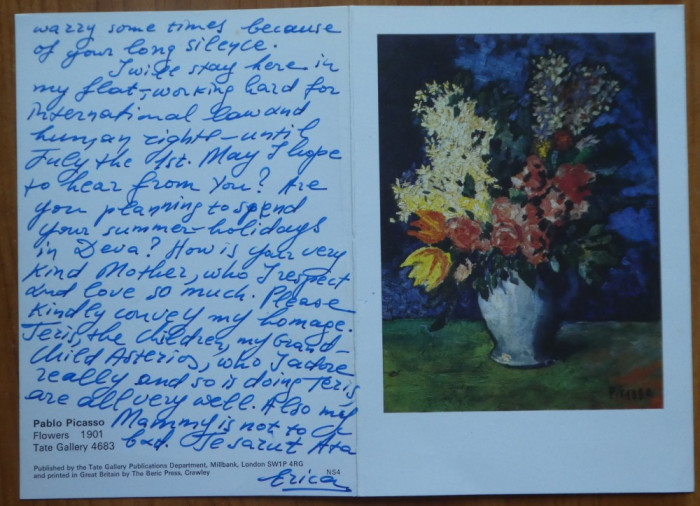 warry some times because
of your long silence.
I will stay here in
my flat-working hard for
international law and
human rights-until
July the 1st. May I hope
to hear from You? Are
you planning to spend
your summer-holidays
in Deva? How is your very
kind Mother, who I respect
and love so much. Please
kindly convey my homage.
Teris, the children, my grand-
child Asterios, who I adore
really and so is doing Teris
are all very well. Also my
Mammy is not to
bad. Te salut Ata
Erica
Pablo Picasso
Flowers 1901
Tate Gallery 4683
Published by the Tate Gallery Publications Department, Millbank, London SW1P 4RG
and printed in Great Britain by The Beric Press, Crawley
NS4
Picasso